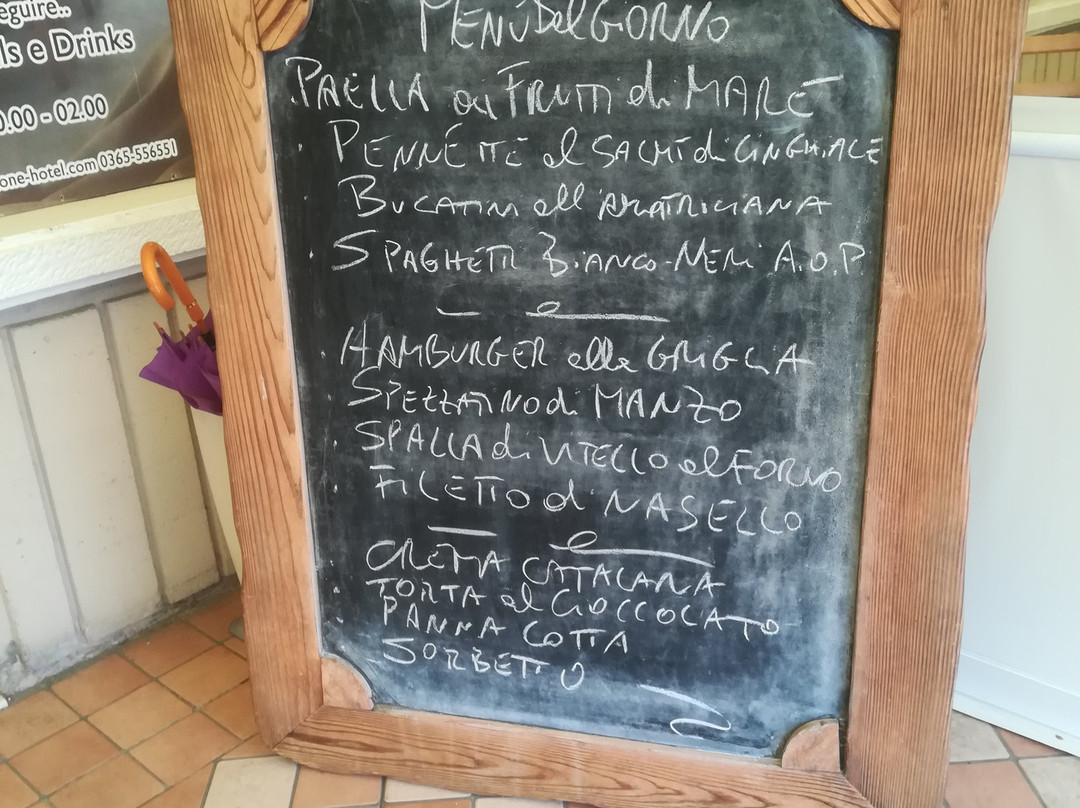 eguire..
ls e Drinks
0.00 - 02.00
one-hotel.com 0365-556551
MENÙ Del GIORNO
PAELLA ai FRUTTI di MARE
PENNETTE al SALMÌ di CINGHIALE
BUCATINI all'AMATRICIANA
SPAGHETTI BIANCO-NERI A.O.P.
HAMBURGER alla GRIGLIA
SPEZZATINO di MANZO
SPALLA di VITELLO al FORNO
FILETTO di NASELLO
CREMA CATALANA
TORTA al CIOCCOLATO
PANNA COTTA
SORBETTO